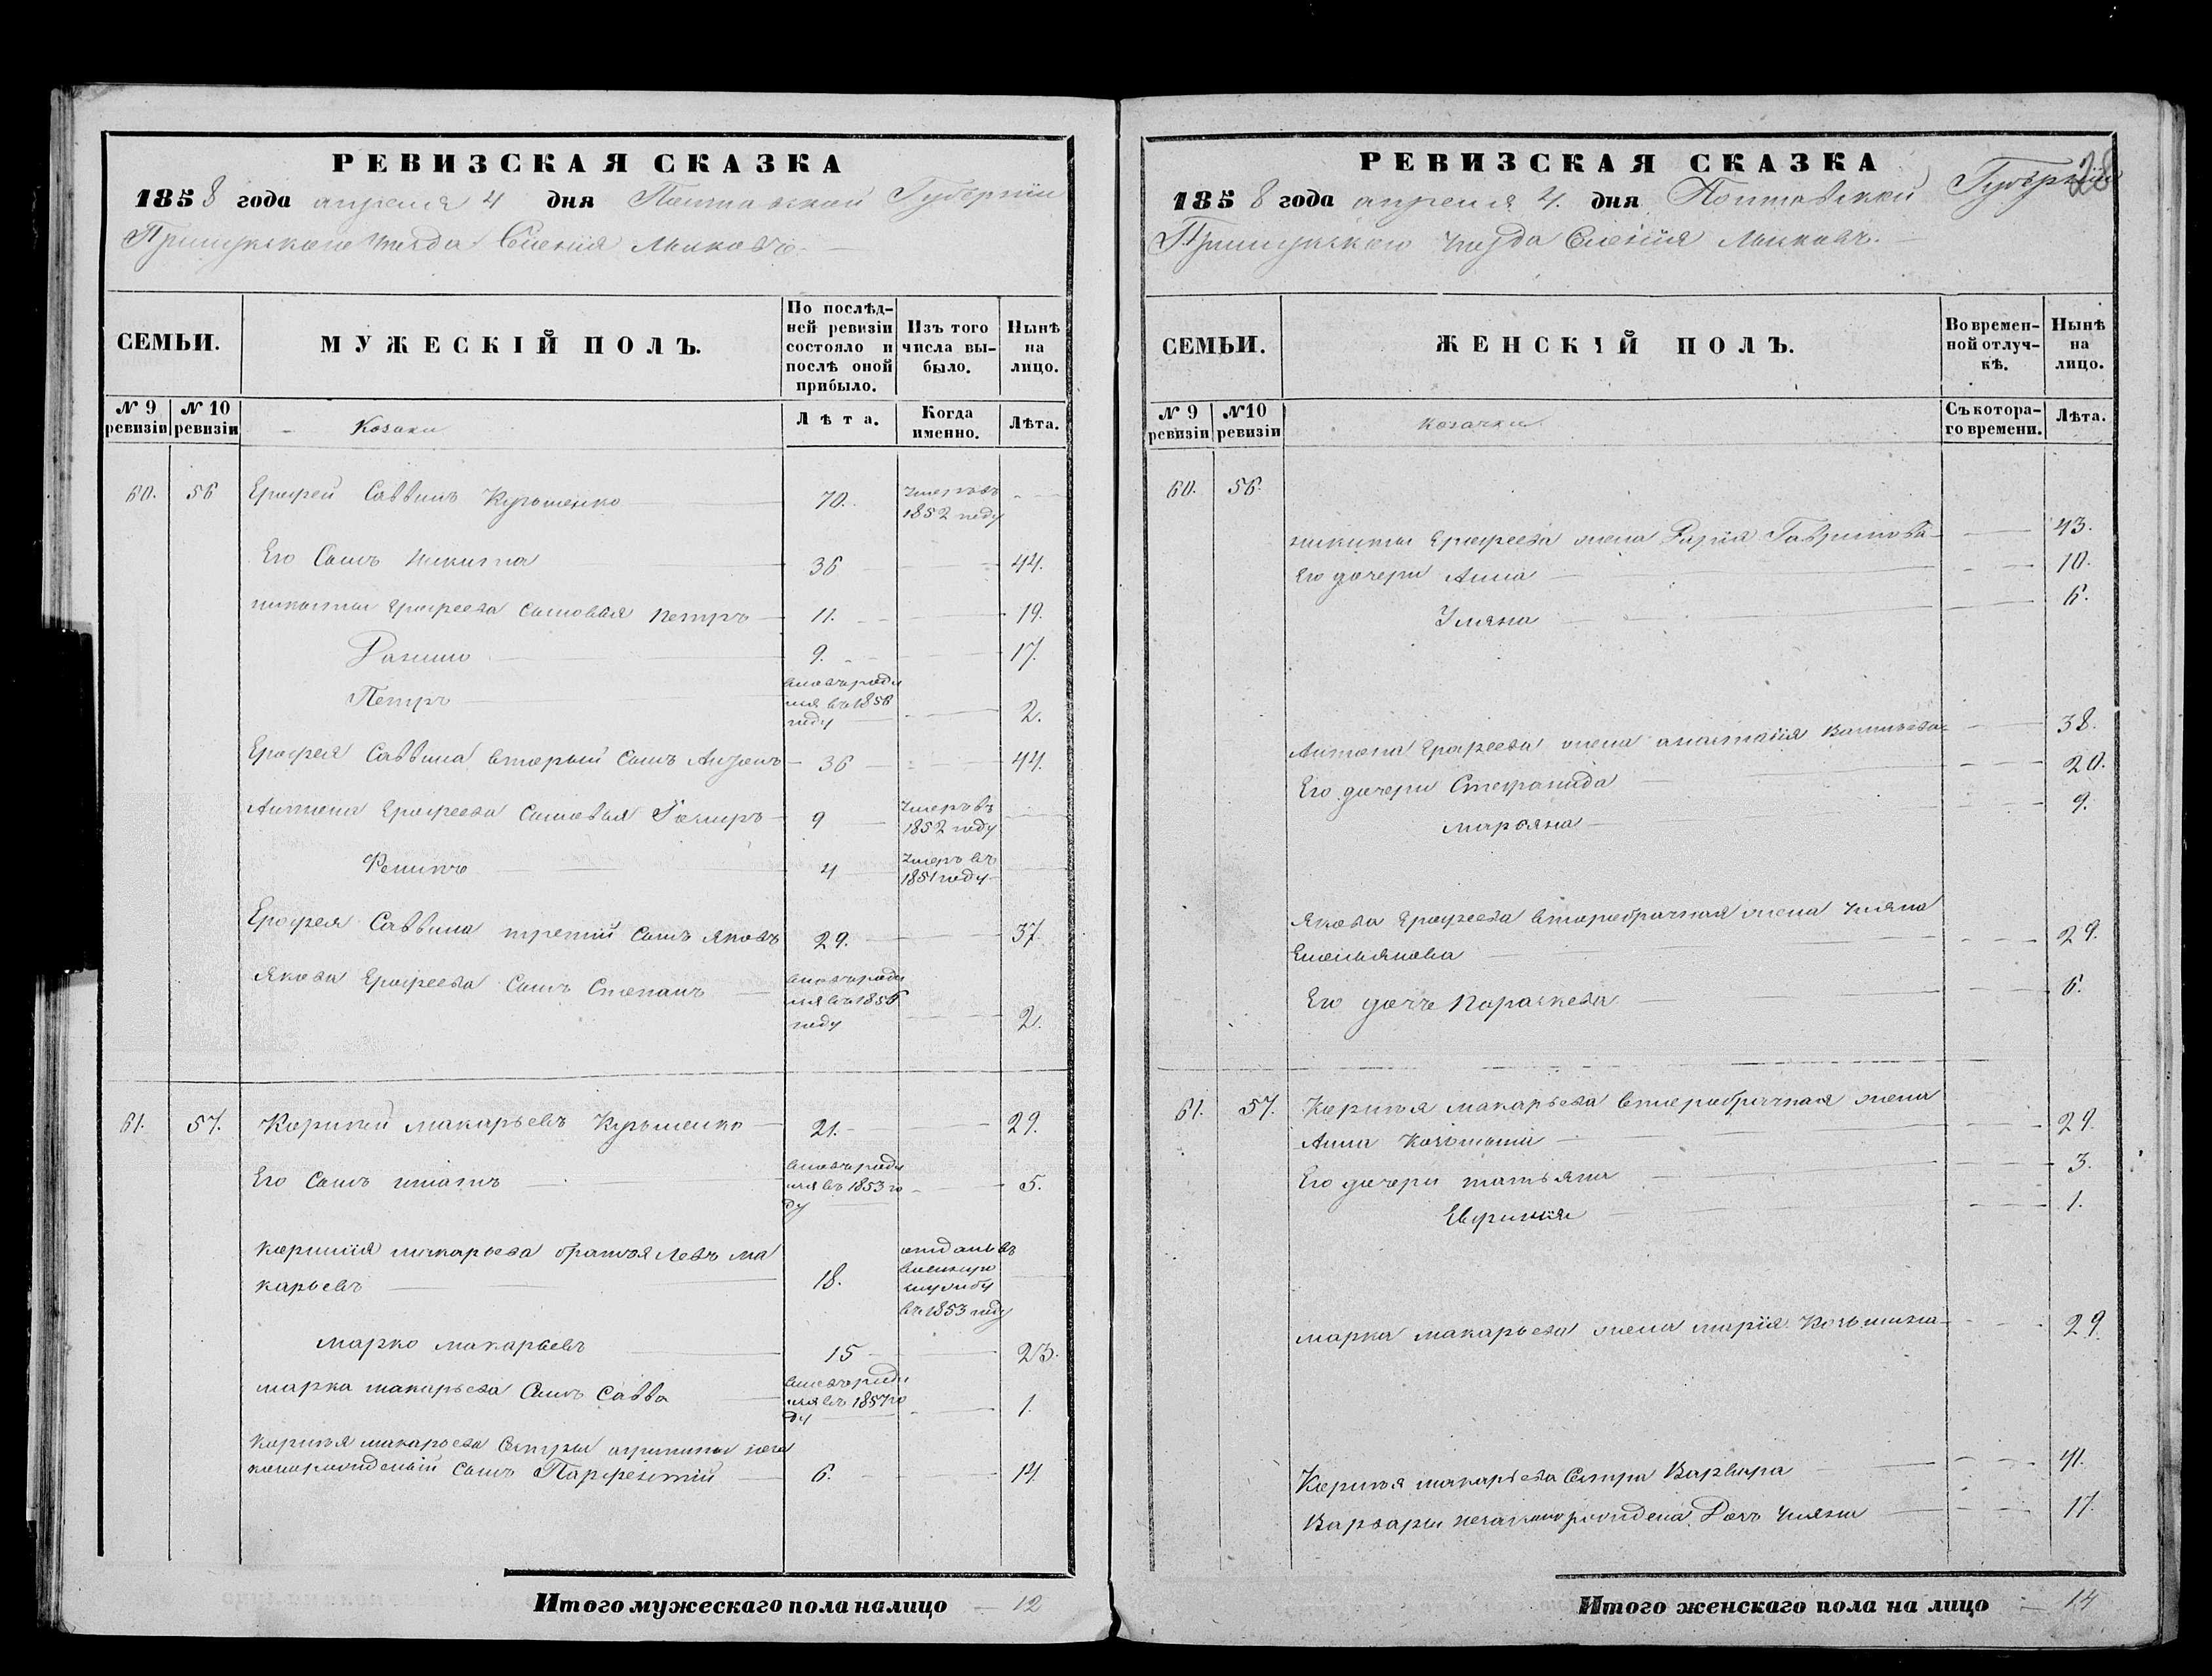 РЕВИЗСКАЯ СКАЗКА
1858 года апреля 4 дня Полтавской Губернии
Прилукского уезда Селения Мыковъ
СЕМЬИ.
МУЖЕСКІЙ ПОЛЪ.
По послѣд-
ней ревизіи
состояло и
послѣ оной
прибыло.
Изъ того
числа вы-
было.
Нынѣ
на
лицо.
№ 9 ревизіи
№ 10 ревизіи
Козаки
Лѣта.
Когда именно.
Лѣта.
60. 56 Ерофей Саввинъ Курьменко 70. умеръ въ 1852 году
Его Сынъ Никита 36 44.
Никиты Ерофеева сыновья Петръ 11. 19.
Данило 9. 17.
Петръ вновь роди
лся въ 1856
году 2.
Ерофея Саввина вторый сынъ Антонъ 36 44.
Антона Ерофеева Сыновья 9 умеръ въ 1852 году
Филипъ 4 умеръ въ 1851 году
Ерофея Саввина третій сынъ Яковъ 29. 37.
Якова Ерофеева Сынъ Степанъ вновь роди
лся въ 1856
году 2.
61. 57. Корнилій Макарьевъ Курьменко 21. 29.
Его Сынъ Игнатъ вновь роди
лся въ 1853 го
ду 5.
Корнилія Макарьева братья Левъ Ма
карьевъ 18. отданъ въ
военную
службу
въ 1853 году
Марко Макарьевъ 15 23.
Марка Макарьева Сынъ Савва вновь роди
лся въ 1857 го
ду 1.
Корнилія Макарьева Сестры неза
коннорожденый сынъ Парфентій 6. 14.
Итого мужескаго пола налицо 12
28
РЕВИЗСКАЯ СКАЗКА
1858 года апреля 4. дня Полтавской Губерніи
Прилукского уезда Селенія Мыковъ.
СЕМЬИ.
ЖЕНСКІЙ ПОЛЪ.
Во времен-
ной отлуч-
кѣ.
Нынѣ
на
лицо.
№ 9 ревизіи
№ 10 ревизіи
Козачки
Съ котора-
го времени.
Лѣта.
60. 56.
Никиты Ерофеева жена Гаврилова 43.
Его дочери Анна 10.
Уляна 6.
Антона Ерофеева жена Анастасія Васильева 38.
Его дочери Стефанида 20.
Марьяна 9.
Якова Ерофеева второбрачная жена Уляна
Емельянова 29.
Его дочь Параскева 6.
61. 57. Корнилія Макарьева второбрачная жена
Анна Козьмина 29.
Его дочери Татьяна 3.
Евфимія 1.
Марка Макарьева жена Марія Козьмина 29.
Корнилія Макарьева Сестра Варвара 41.
Варвары незаконорождена Дочь Уляна 17.
Итого женскаго пола на лицо 14